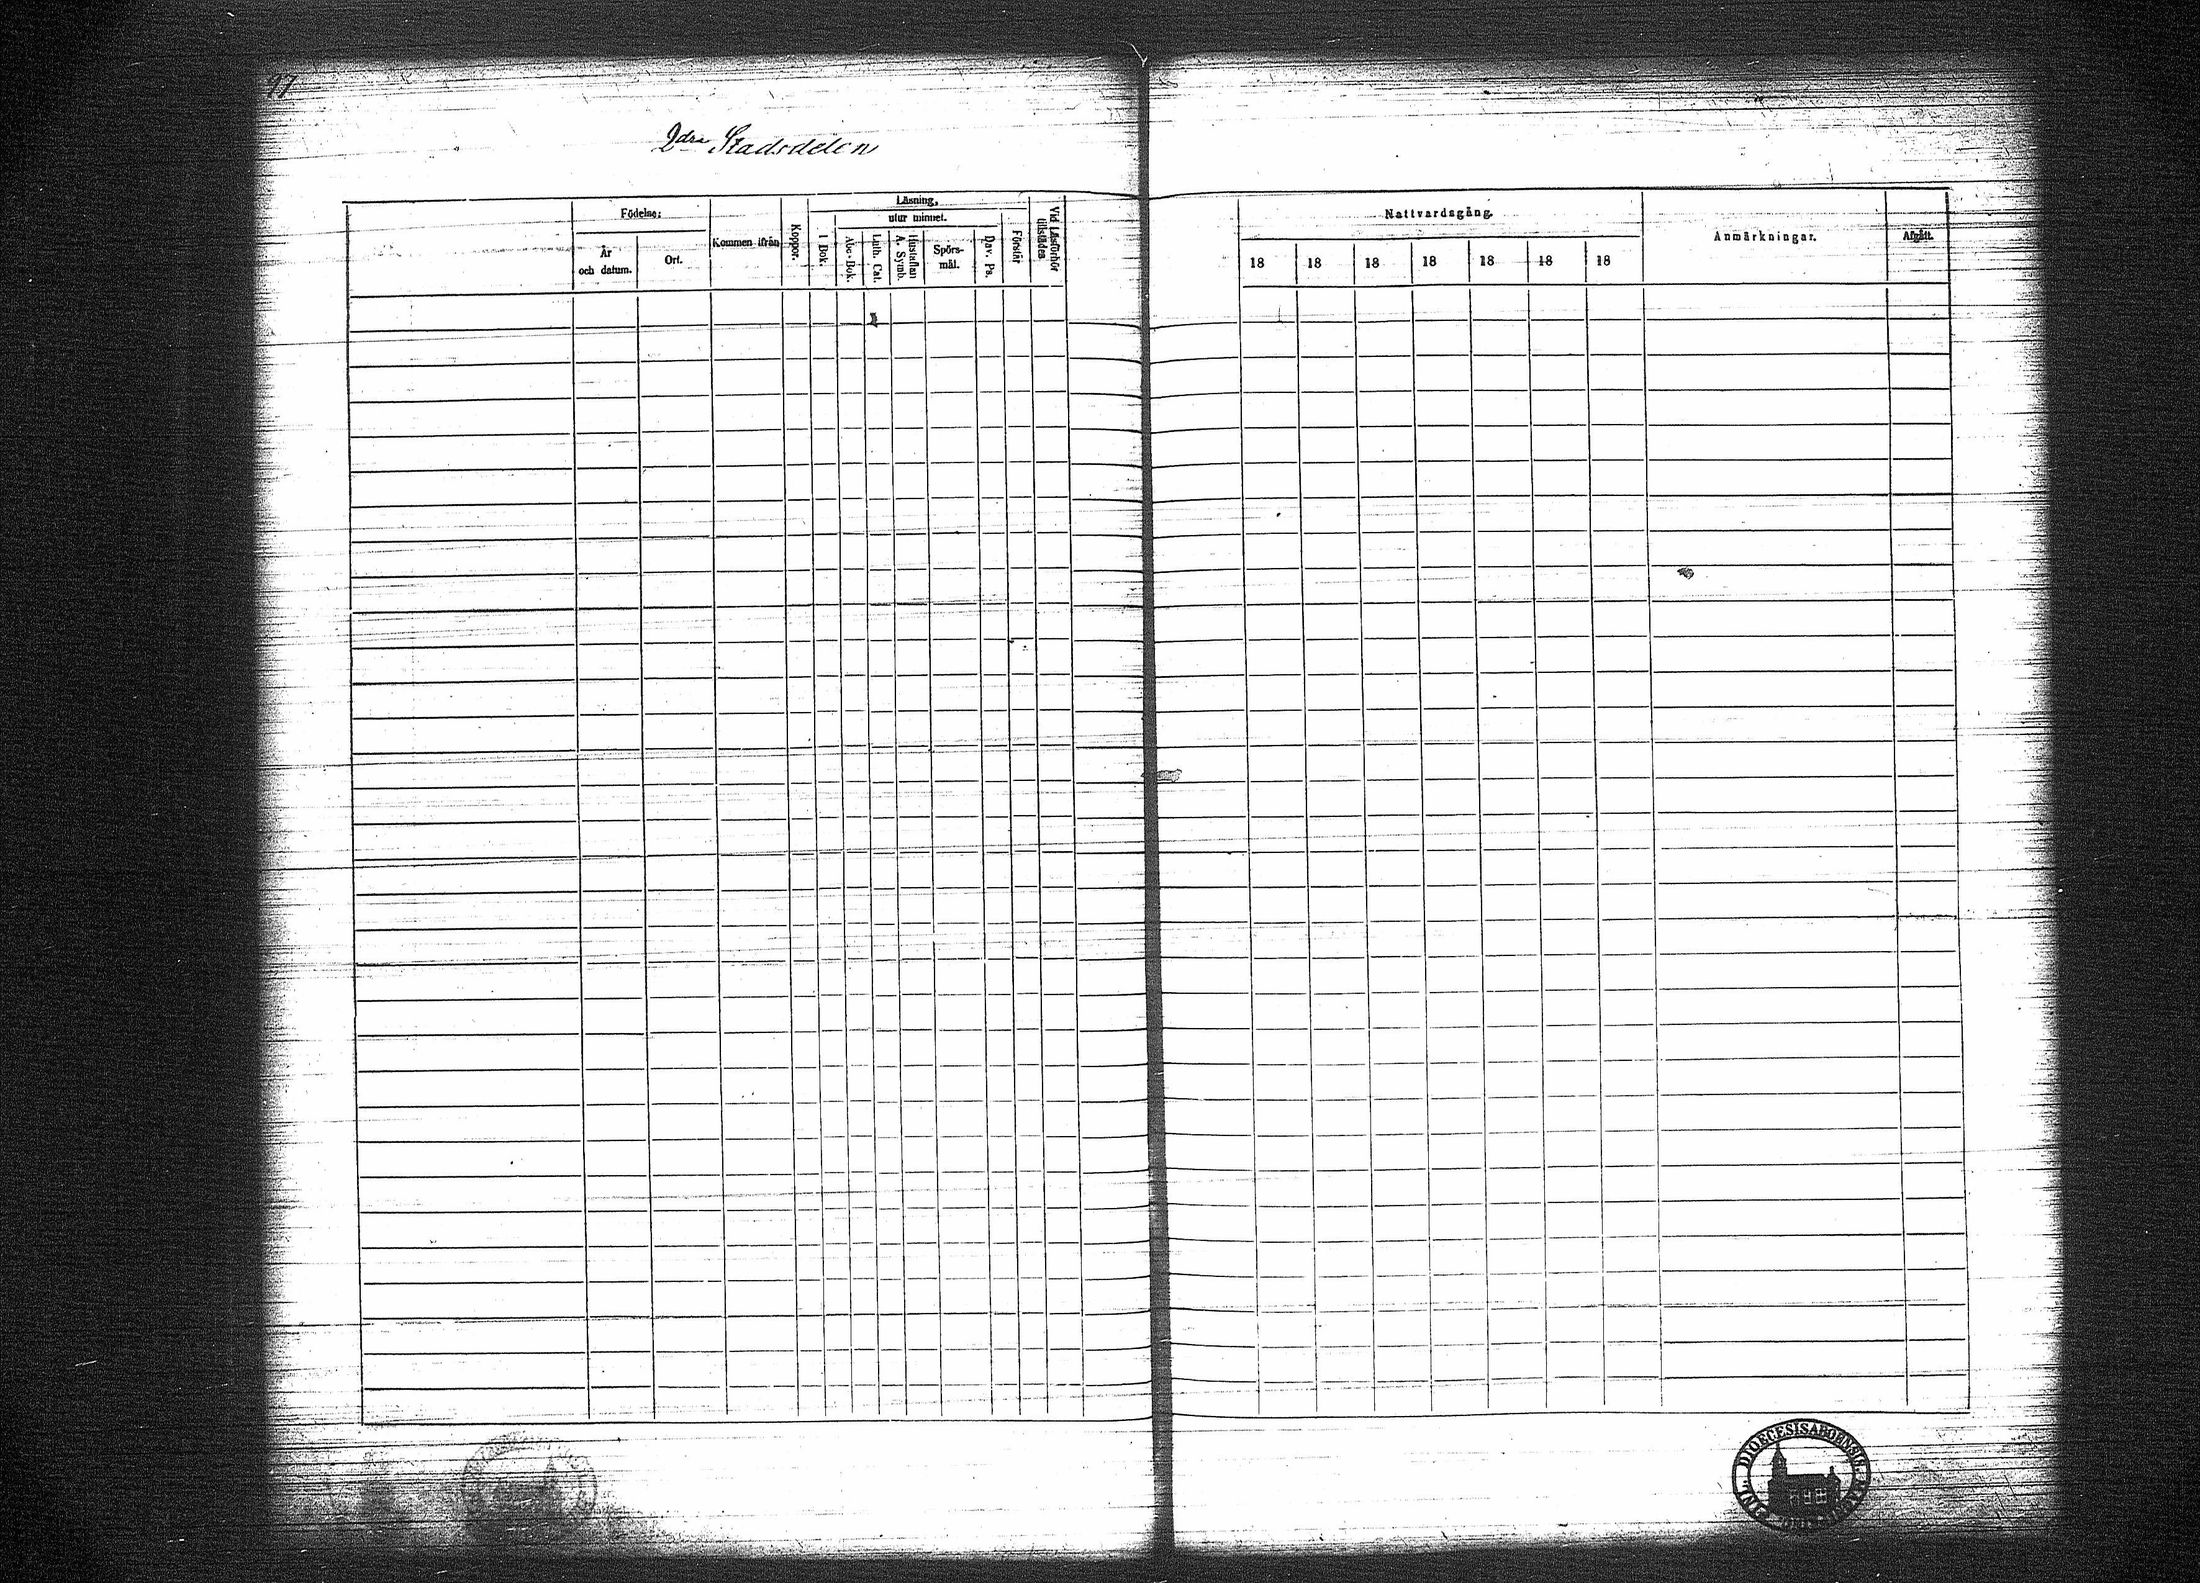 97
2dra Stadsdelen
Födelse:
År
och datum.
Ort.
Kommen ifrån
Koppor.
Läsning,
utur minnet.
I Bok.
Abc-Bok.
Luth. Cat.
Hustaflan
A. Symb.
Spörs-
mål.
Dav. Ps.
Förstår
Vid Läsförhör
tillstädes
Nattvardsgång.
18 18 18 18 18 18 18
Anmärkningar.
Afgått.
DIOECESIS ABOENSIS